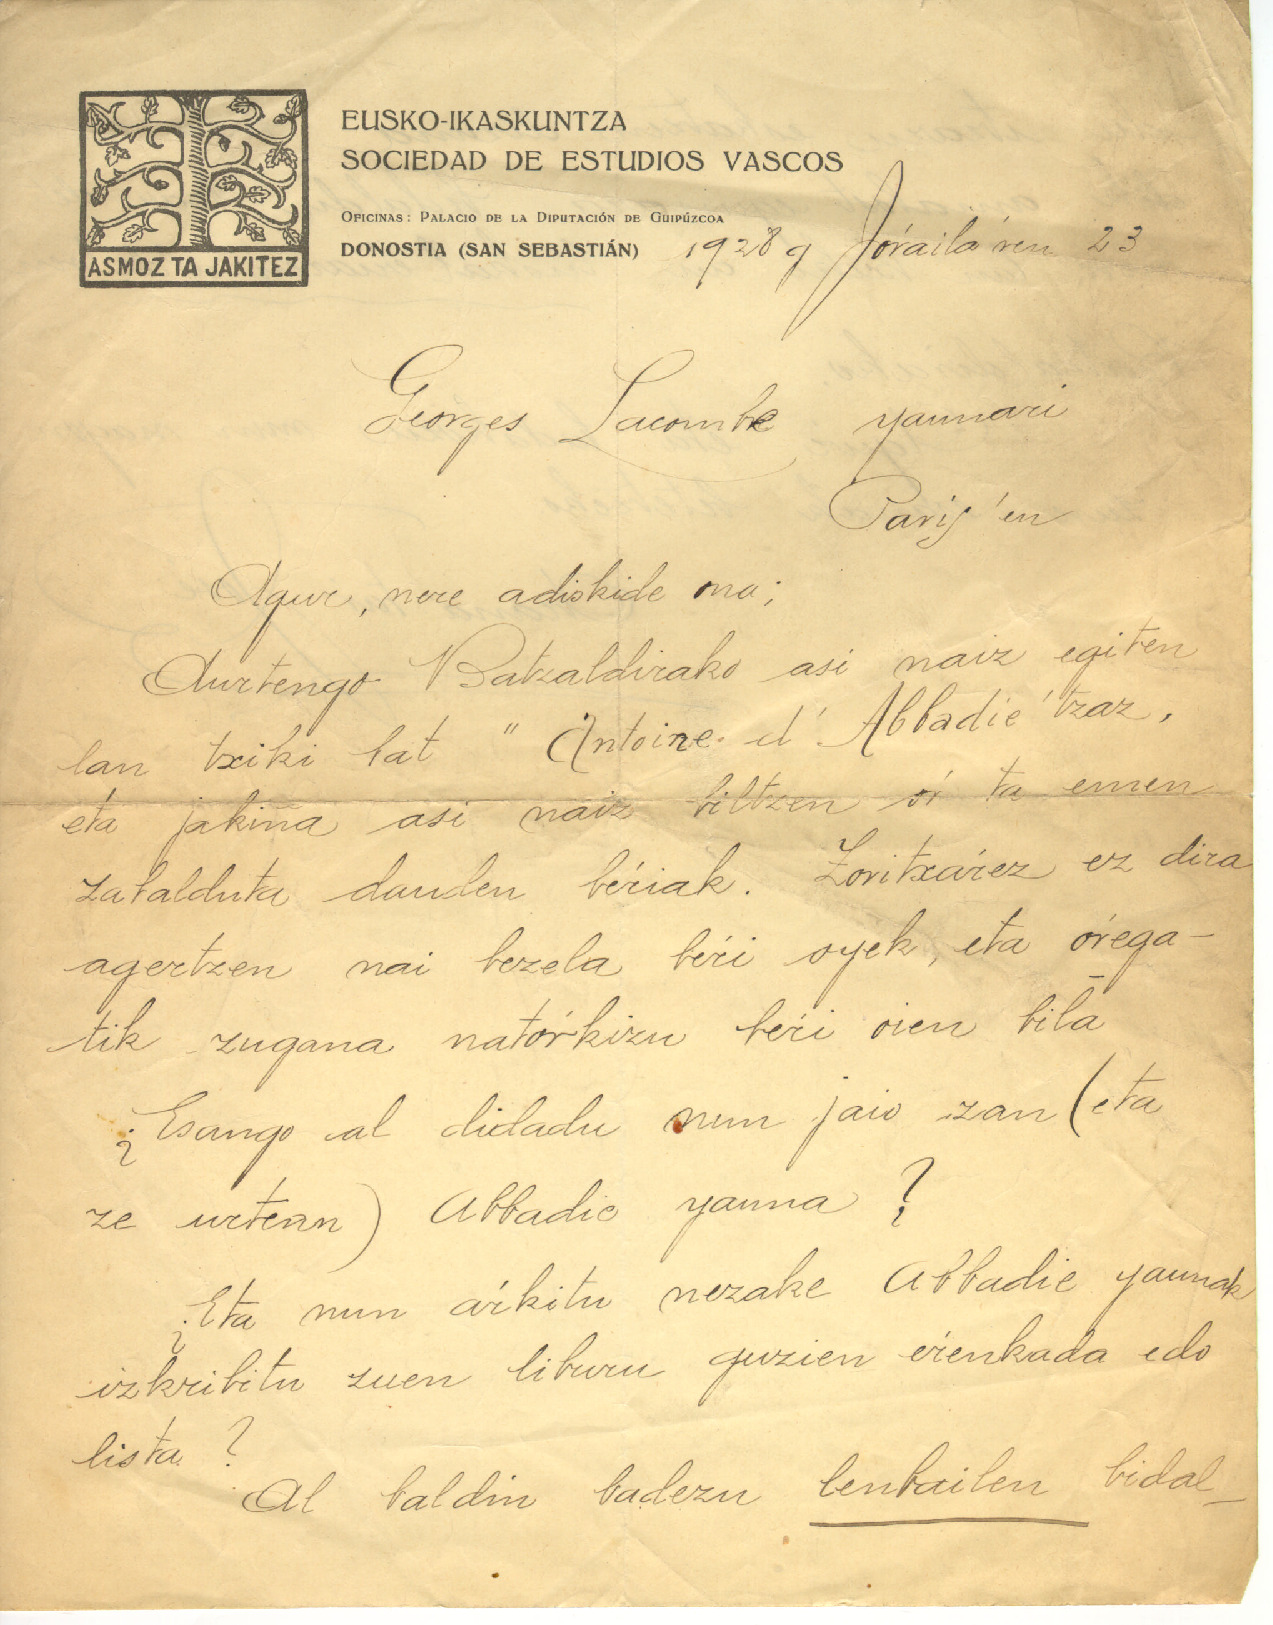 EUSKO-IKASKUNTZA
SOCIEDAD DE ESTUDIOS VASCOS
OFICINAS: PALACIO DE LA DIPUTACIÓN DE GUIPÚZCOA
DONOSTIA (SAN SEBASTIÁN) 1928 g Joŕaila'ren 23
ASMOZ TA JAKITEZ
Georges Lacombe yaunari
Paris'en
Agur, nere adiskide ona;
Aurtengo Batzaldirako asi naiz egiten
lan txiki bat "Antoine d'Abbadie'tzaz,
eta jakiña asi naiz biltzen oŕ ta emen
zabalduta dauden beŕiak. Zoritxaŕez ez dira
agertzen nai bezela beŕi oyek, eta oŕega-
tik zugana natoŕkizu beŕi oien bila
¿Esango al didadu nun jaio zan (eta
ze urtean) Abbadie yauna?
¿Eta nun aŕkitu nezake Abbadie yaunak
izkribitu zuen liburu guzien eŕenkada edo
lista?
Al baldin badezu lenbailen bidal-